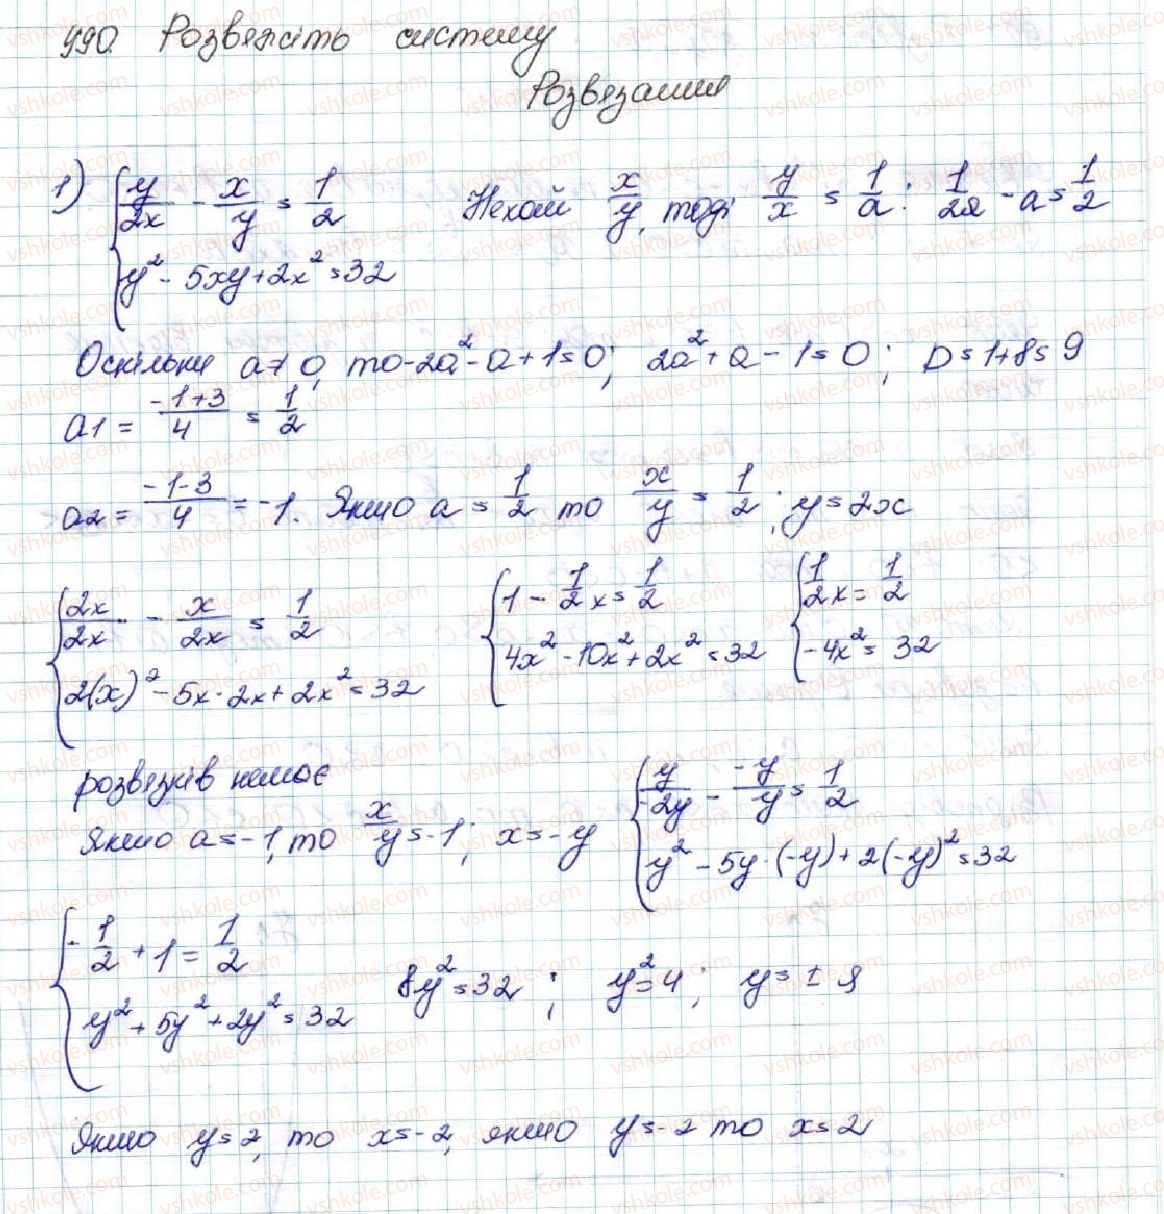 990. Розвяжіть систему
Розвязання
1) { y/2x - x/y = 1/2   Нехай x/y, тоді y/x = 1/a: 1/2a - a = 1/2
y² - 5xy + 2x² = 32
Оскільки a ≠ 0, то -2a² - a + 1 = 0; 2a² + a - 1 = 0; D = 1 + 8 = 9
a1 = (-1+3)/4 = 1/2
a2 = (-1-3)/4 = -1. Якщо a = 1/2 то x/y = 1/2; y = 2x
{ 2x/2x - x/2x = 1/2   { 1 - 1/2 x = 1/2   { 1/2 x = 1/2
2(x)² - 5x · 2x + 2x² = 32   4x² - 10x² + 2x² = 32   -4x² = 32
розвязків немає
Якщо a = -1, то x/y = -1; x = -y   { y/-2y - -y/y = 1/2
y² - 5y · (-y) + 2(-y)² = 32
{ -1/2 + 1 = 1/2   8y² = 32; y² = 4; y = ± 2
y² + 5y² + 2y² = 32
Якщо y = 2, то x = -2, якщо y = -2 то x = 2